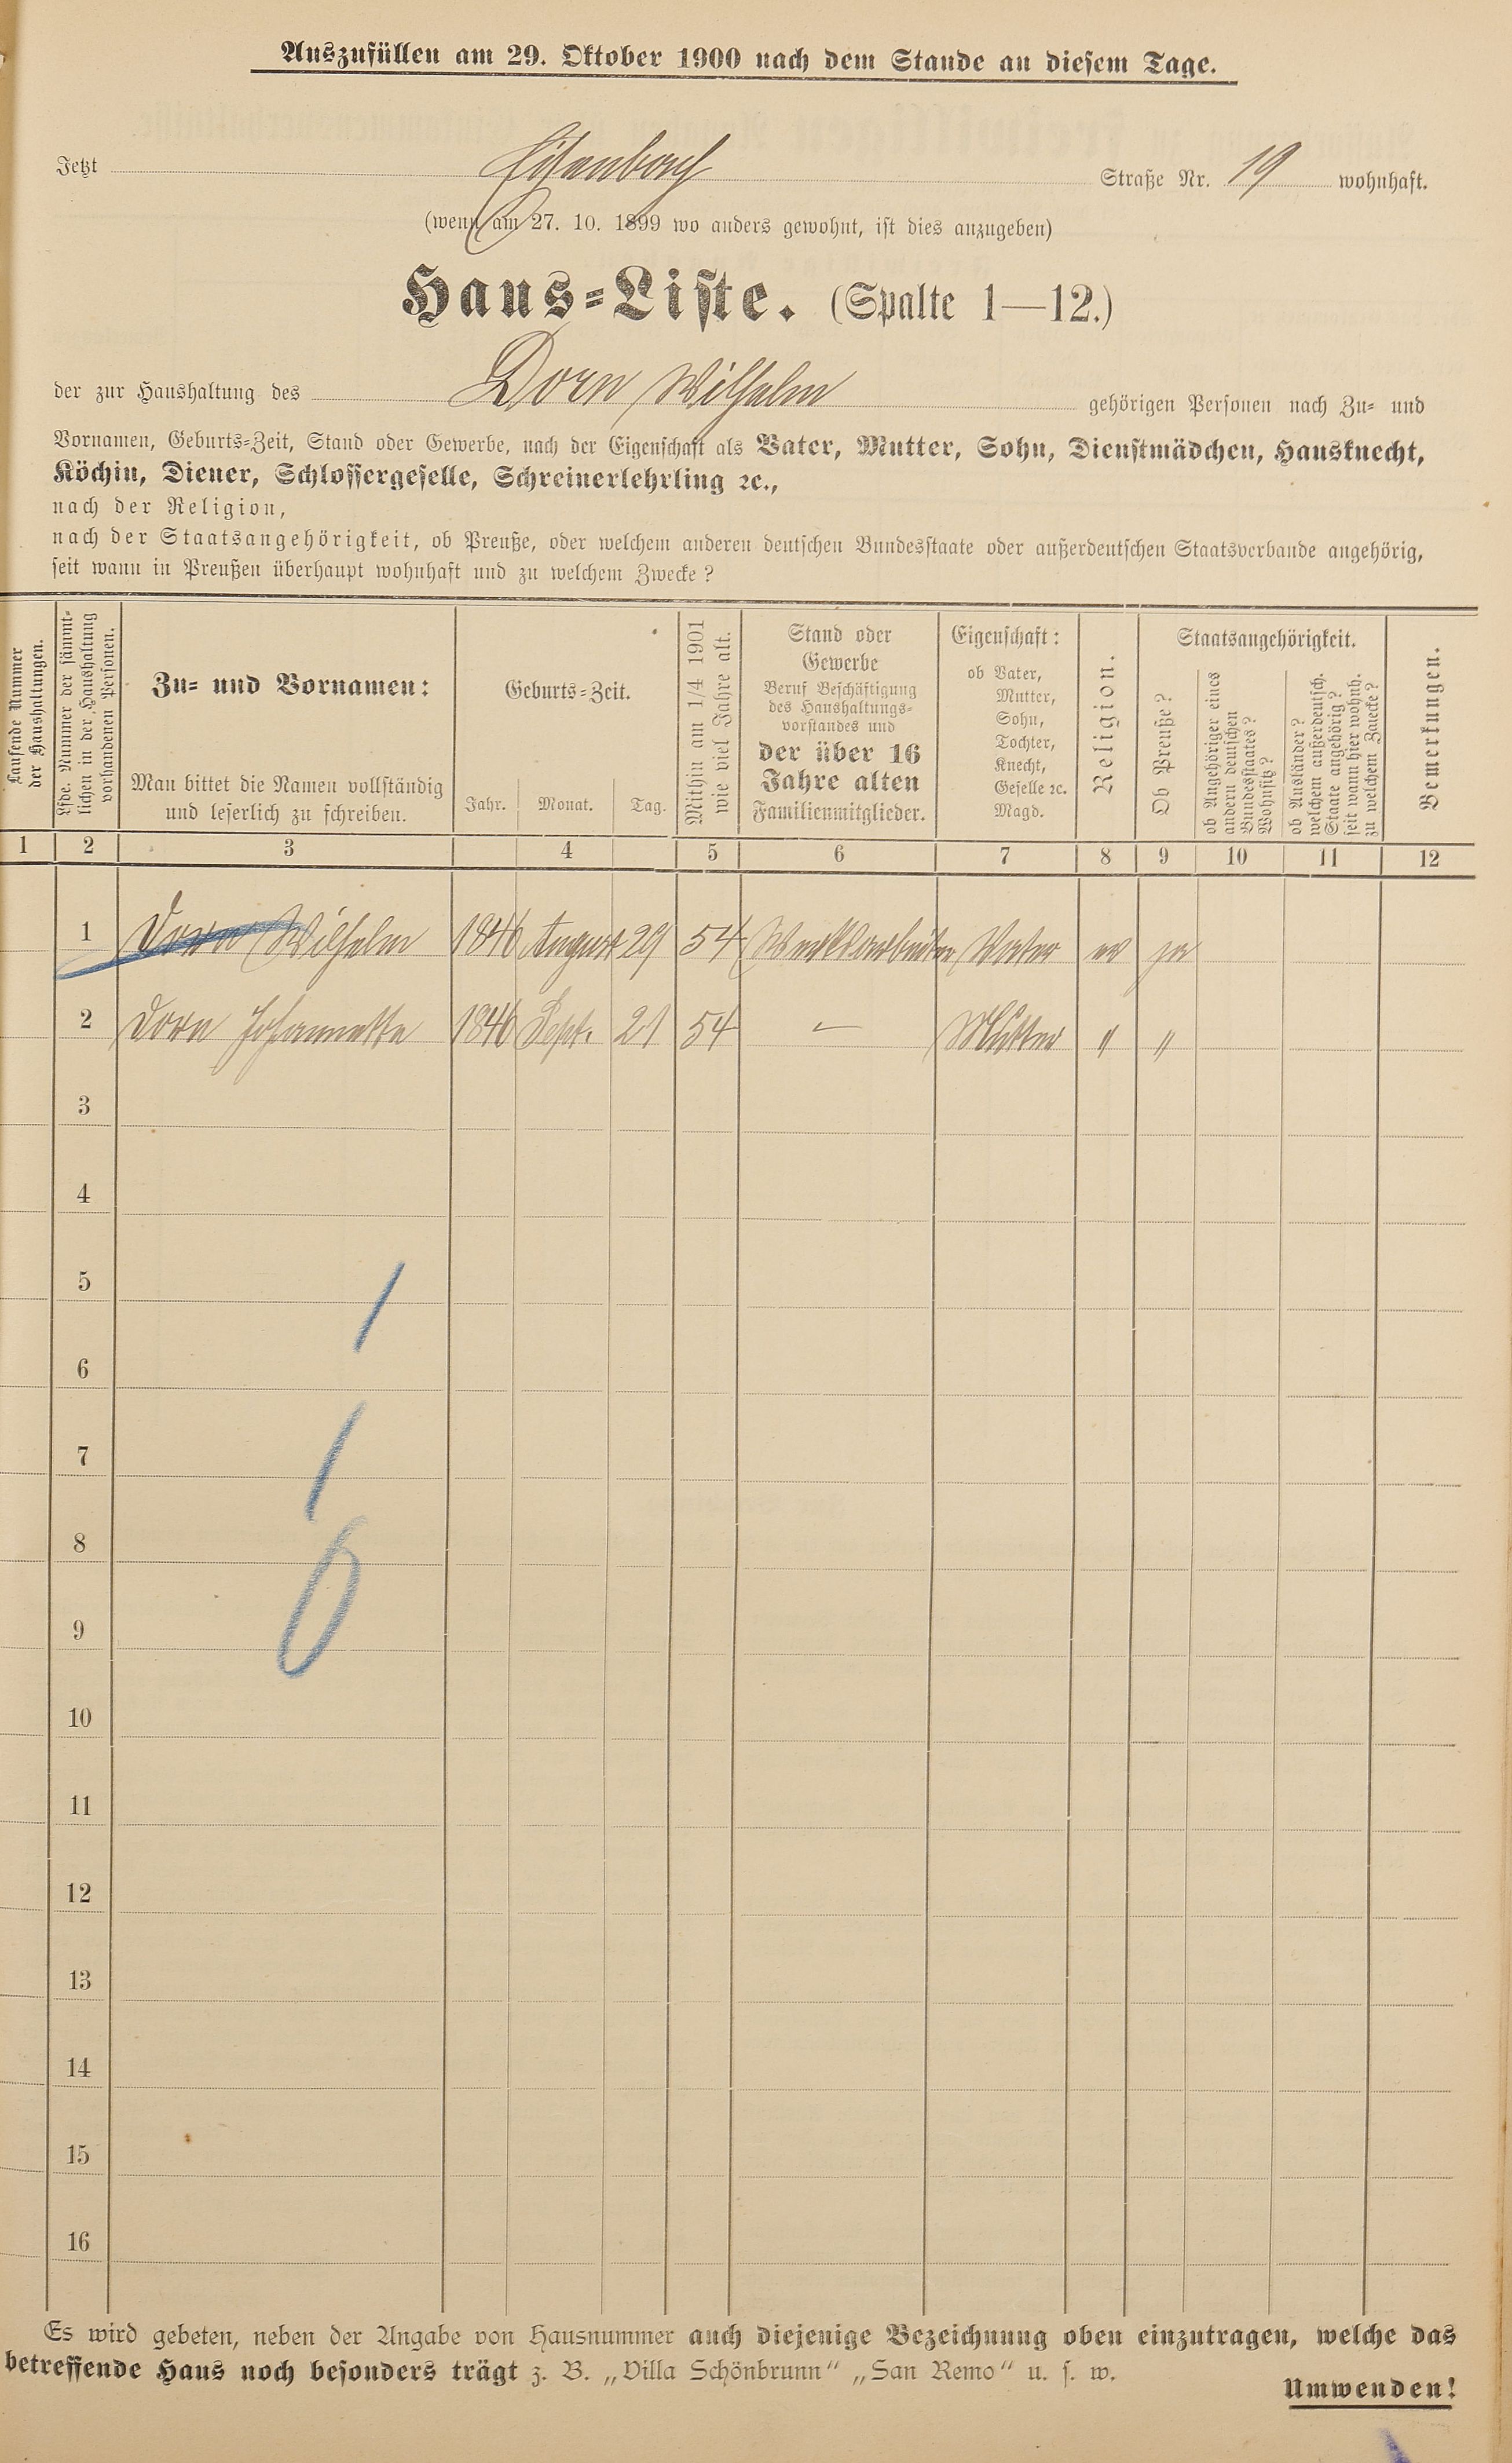 Auszufüllen am 29. Oktober 1900 nach dem Stande an diesem Tage.
Jetzt Eisenbach Straße Nr. 19 wohnhaft.
(wenn am 27. 10. 1899 wo anders gewohnt, ist dies anzugeben)
Haus-Liste. (Spalte 1—12.)
der zur Haushaltung des Dorn Wilhelm gehörigen Personen nach Zu- und
Vornamen, Geburts-Zeit, Stand oder Gewerbe, nach der Eigenschaft als Vater, Mutter, Sohn, Dienstmädchen, Hausknecht,
Köchin, Diener, Schlossergeselle, Schreinerlehrling ꝛc.,
nach der Religion,
nach der Staatsangehörigkeit, ob Preuße, oder welchem anderen deutschen Bundesstaate oder außerdeutschen Staatsverbande angehörig,
seit wann in Preußen überhaupt wohnhaft und zu welchem Zwecke?
Laufende Nummer
der Haushaltungen.
Lfde. Nummer der sämmt-
lichen in der Haushaltung
vorhandenen Personen.
Zu- und Vornamen:
Man bittet die Namen vollständig
und leserlich zu schreiben.
Geburts-Zeit.
Jahr. Monat. Tag.
Mithin am 1/4 1901
wie viel Jahre alt.
Stand oder
Gewerbe
Beruf Beschäftigung
des Haushaltungs-
vorstandes und
der über 16
Jahre alten
Familienmitglieder.
Eigenschaft:
ob Vater,
Mutter,
Sohn,
Tochter,
Knecht,
Geselle ꝛc.
Magd.
Religion.
Staatsangehörigkeit.
Ob Preuße?
ob Angehöriger eines
andern deutschen
Bundesstaates?
Wohnsitz?
ob Ausländer?
welchem außerdeutsch.
Staate angehörig?
seit wann hier wohnh.
zu welchem Zwecke?
Bemerkungen.
1 2 3 4 5 6 7 8 9 10 11 12
1 Dorn Wilhelm 1846 August 29 54 Vater ev ja
2 Dorn Johannette 1846 Sept. 21 54 — Mutter " "
3
4
5
6
7
8
9
10
11
12
13
14
15
16
1
1
0
Es wird gebeten, neben der Angabe von Hausnummer auch diejenige Bezeichnung oben einzutragen, welche das
betreffende Haus noch besonders trägt z. B. „Villa Schönbrunn" „San Remo" u. s. w.
Umwenden!